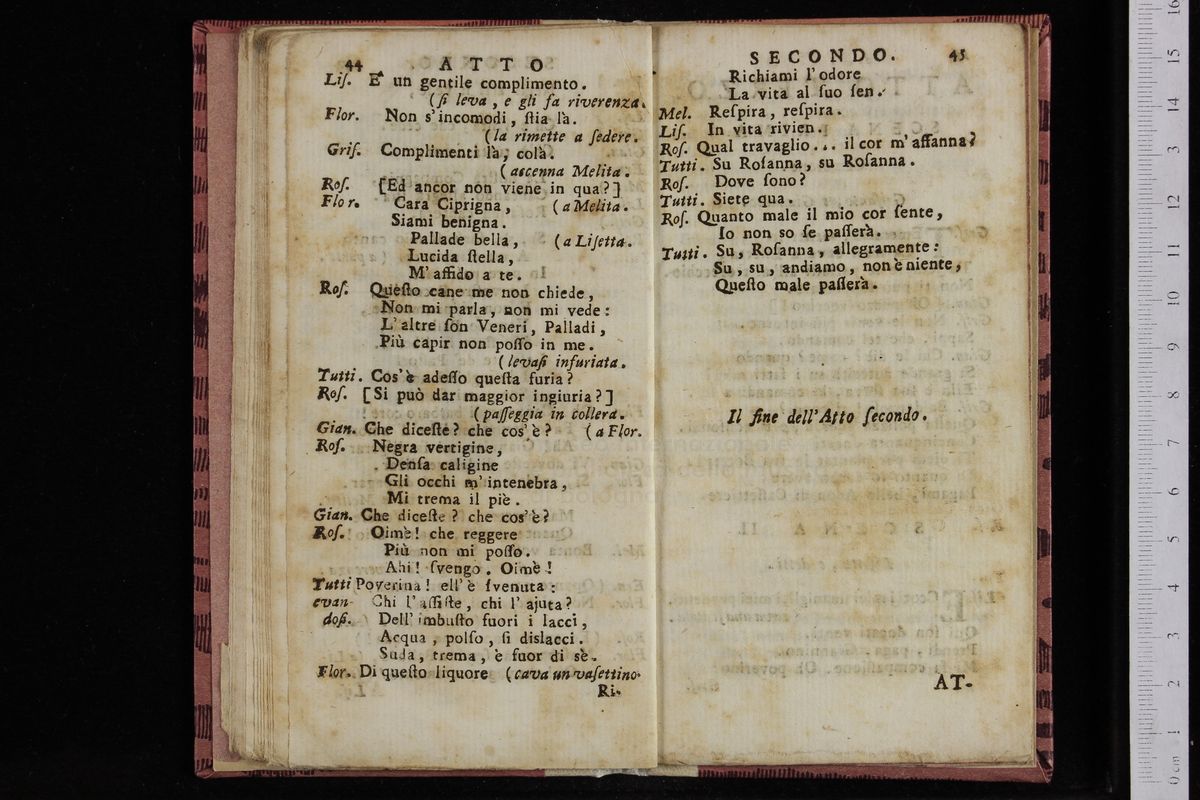 44 ATTO
Liſ. E' un gentile complimento.
(ſi leva, e gli fa riverenza.
Flor. Non s'incomodi, ſtia là.
(la rimette a ſedere.
Griſ. Complimenti là, colà.
(accenna Melita.
Roſ. [Ed ancor non viene in qua?]
Flor. Cara Ciprigna, (a Melita.
Siami benigna.
Pallade bella, (a Liſetta.
Lucida ſtella,
M'affido a te.
Roſ. Queſto cane me non chiede,
Non mi parla, non mi vede:
L'altre ſon Veneri, Palladi,
Più capir non poſſo in me.
(levaſi infuriata.
Tutti. Cos'è adeſſo queſta furia?
Roſ. [Si può dar maggior ingiuria?]
(paſſeggia in collera.
Gian. Che diceſte? che cos'è? (a Flor.
Roſ. Negra vertigine,
Denſa caligine
Gli occhi m'intenebra,
Mi trema il piè.
Gian. Che diceſte? che cos'è?
Roſ. Oimè! che reggere
Più non mi poſſo.
Ahi! ſvengo. Oimè!
Tutti Poverina! ell'è ſvenuta:
evan- Chi l'aſſiſte, chi l'ajuta?
doſi. Dell'imbuſto fuori i lacci,
Acqua, polſo, ſi dislacci.
Suda, trema, è fuor di sè.
Flor. Di queſto liquore (cava un vaſettino.
Ri-
SECONDO. 45
Richiami l'odore
La vita al ſuo ſen.
Mel. Reſpira, reſpira.
Liſ. In vita rivien.
Roſ. Qual travaglio... il cor m'affanna?
Tutti. Su Roſanna, su Roſanna.
Roſ. Dove ſono?
Tutti. Siete qua.
Roſ. Quanto male il mio cor ſente,
Io non so ſe paſſerà.
Tutti. Su, Roſanna, allegramente:
Su, su, andiamo, non è niente,
Queſto male paſſerà.
Il fine dell'Atto ſecondo.
AT-
16
15
14
13
12
11
10
9
8
7
6
5
4
3
2
1
0 cm